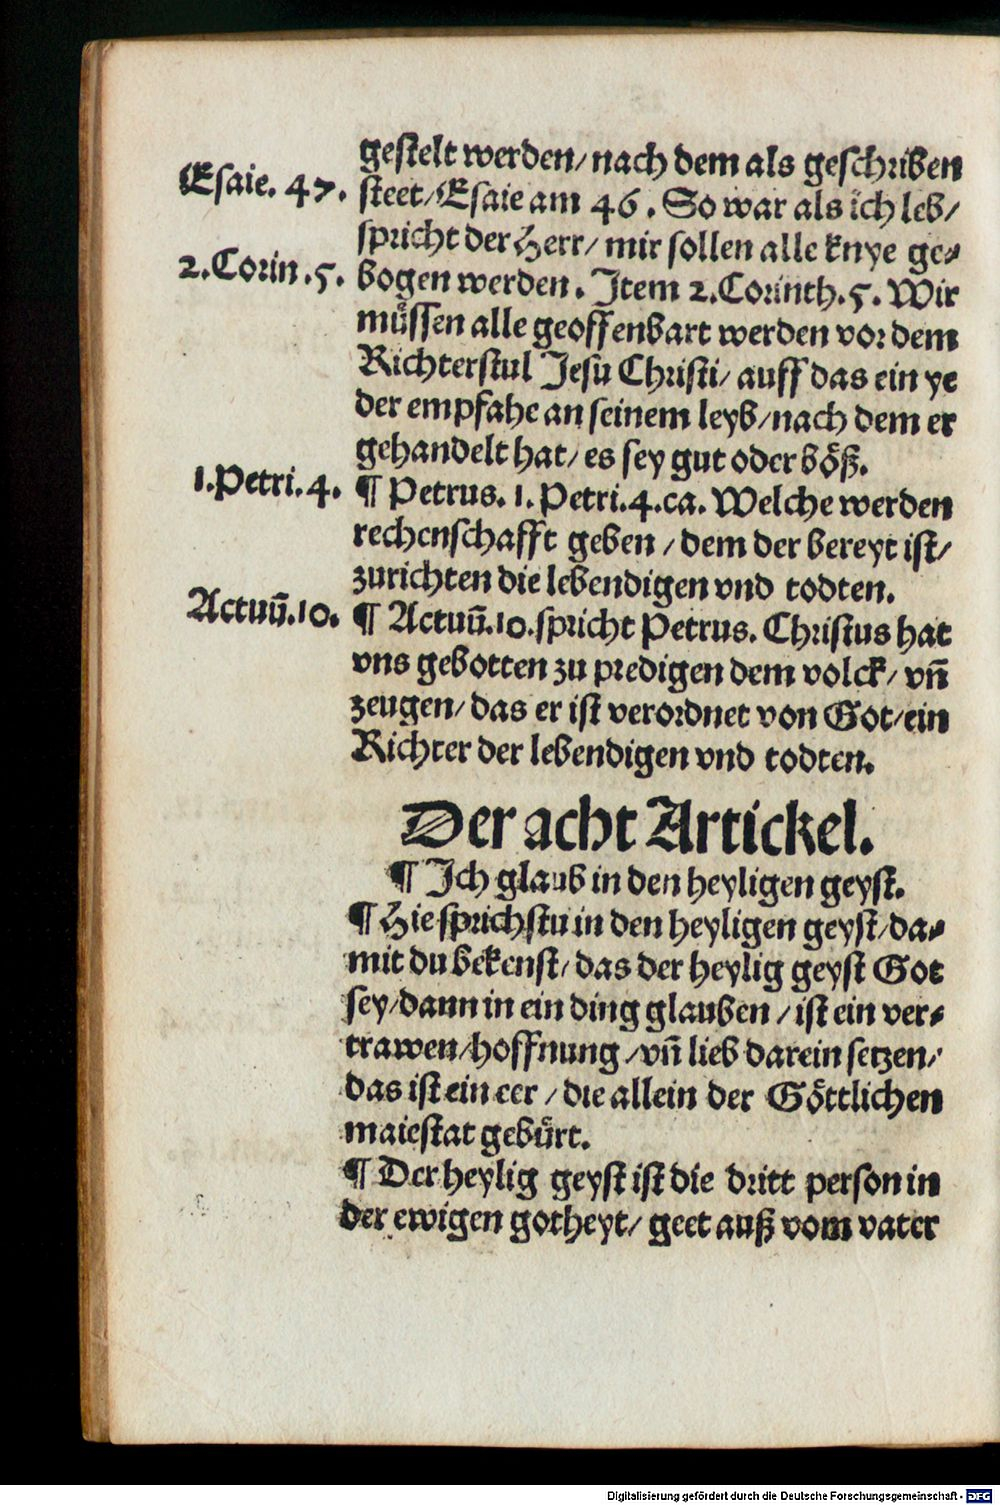 gestelt werden/ nach dem als geschriben
Esaie. 47.
steet/ Esaie am 46. So war als ich leb/
spricht der Herr/ mir sollen alle knye ge-
2.Corin.5.
bogen werden. Item 2.Corinth.5. Wir
müssen alle geoffenbart werden vor dem
Richterstul Jesu Christi/ auff das ein ye
der empfahe an seinem leyb/ nach dem er
gehandelt hat/ es sey gut oder böß.
1.Petri.4.
¶ Petrus. 1. Petri.4.ca. Welche werden
rechenschafft geben / dem der bereyt ist/
zurichten die lebendigen vnd todten.
Actuū.10.
¶ Actuū.10.spricht Petrus. Christus hat
vns gebotten zu predigen dem volck/ vn̄
zeugen/ das er ist verordnet von Got/ ein
Richter der lebendigen vnd todten.
Der acht Artickel.
¶ Ich glaub in den heyligen geyst.
¶ Hie sprichstu in den heyligen geyst/ da-
mit du bekenst/ das der heylig geyst Got
sey/ dann in ein ding glauben / ist ein ver-
trawen/ hoffnung / vn̄ lieb darein setzen/
das ist ein eer / die allein der Göttlichen
maiestat gebürt.
¶ Der heylig geyst ist die dritt person in
der ewigen gotheyt/ geet auß vom vater
Digitalisierung gefördert durch die Deutsche Forschungsgemeinschaft - DFG